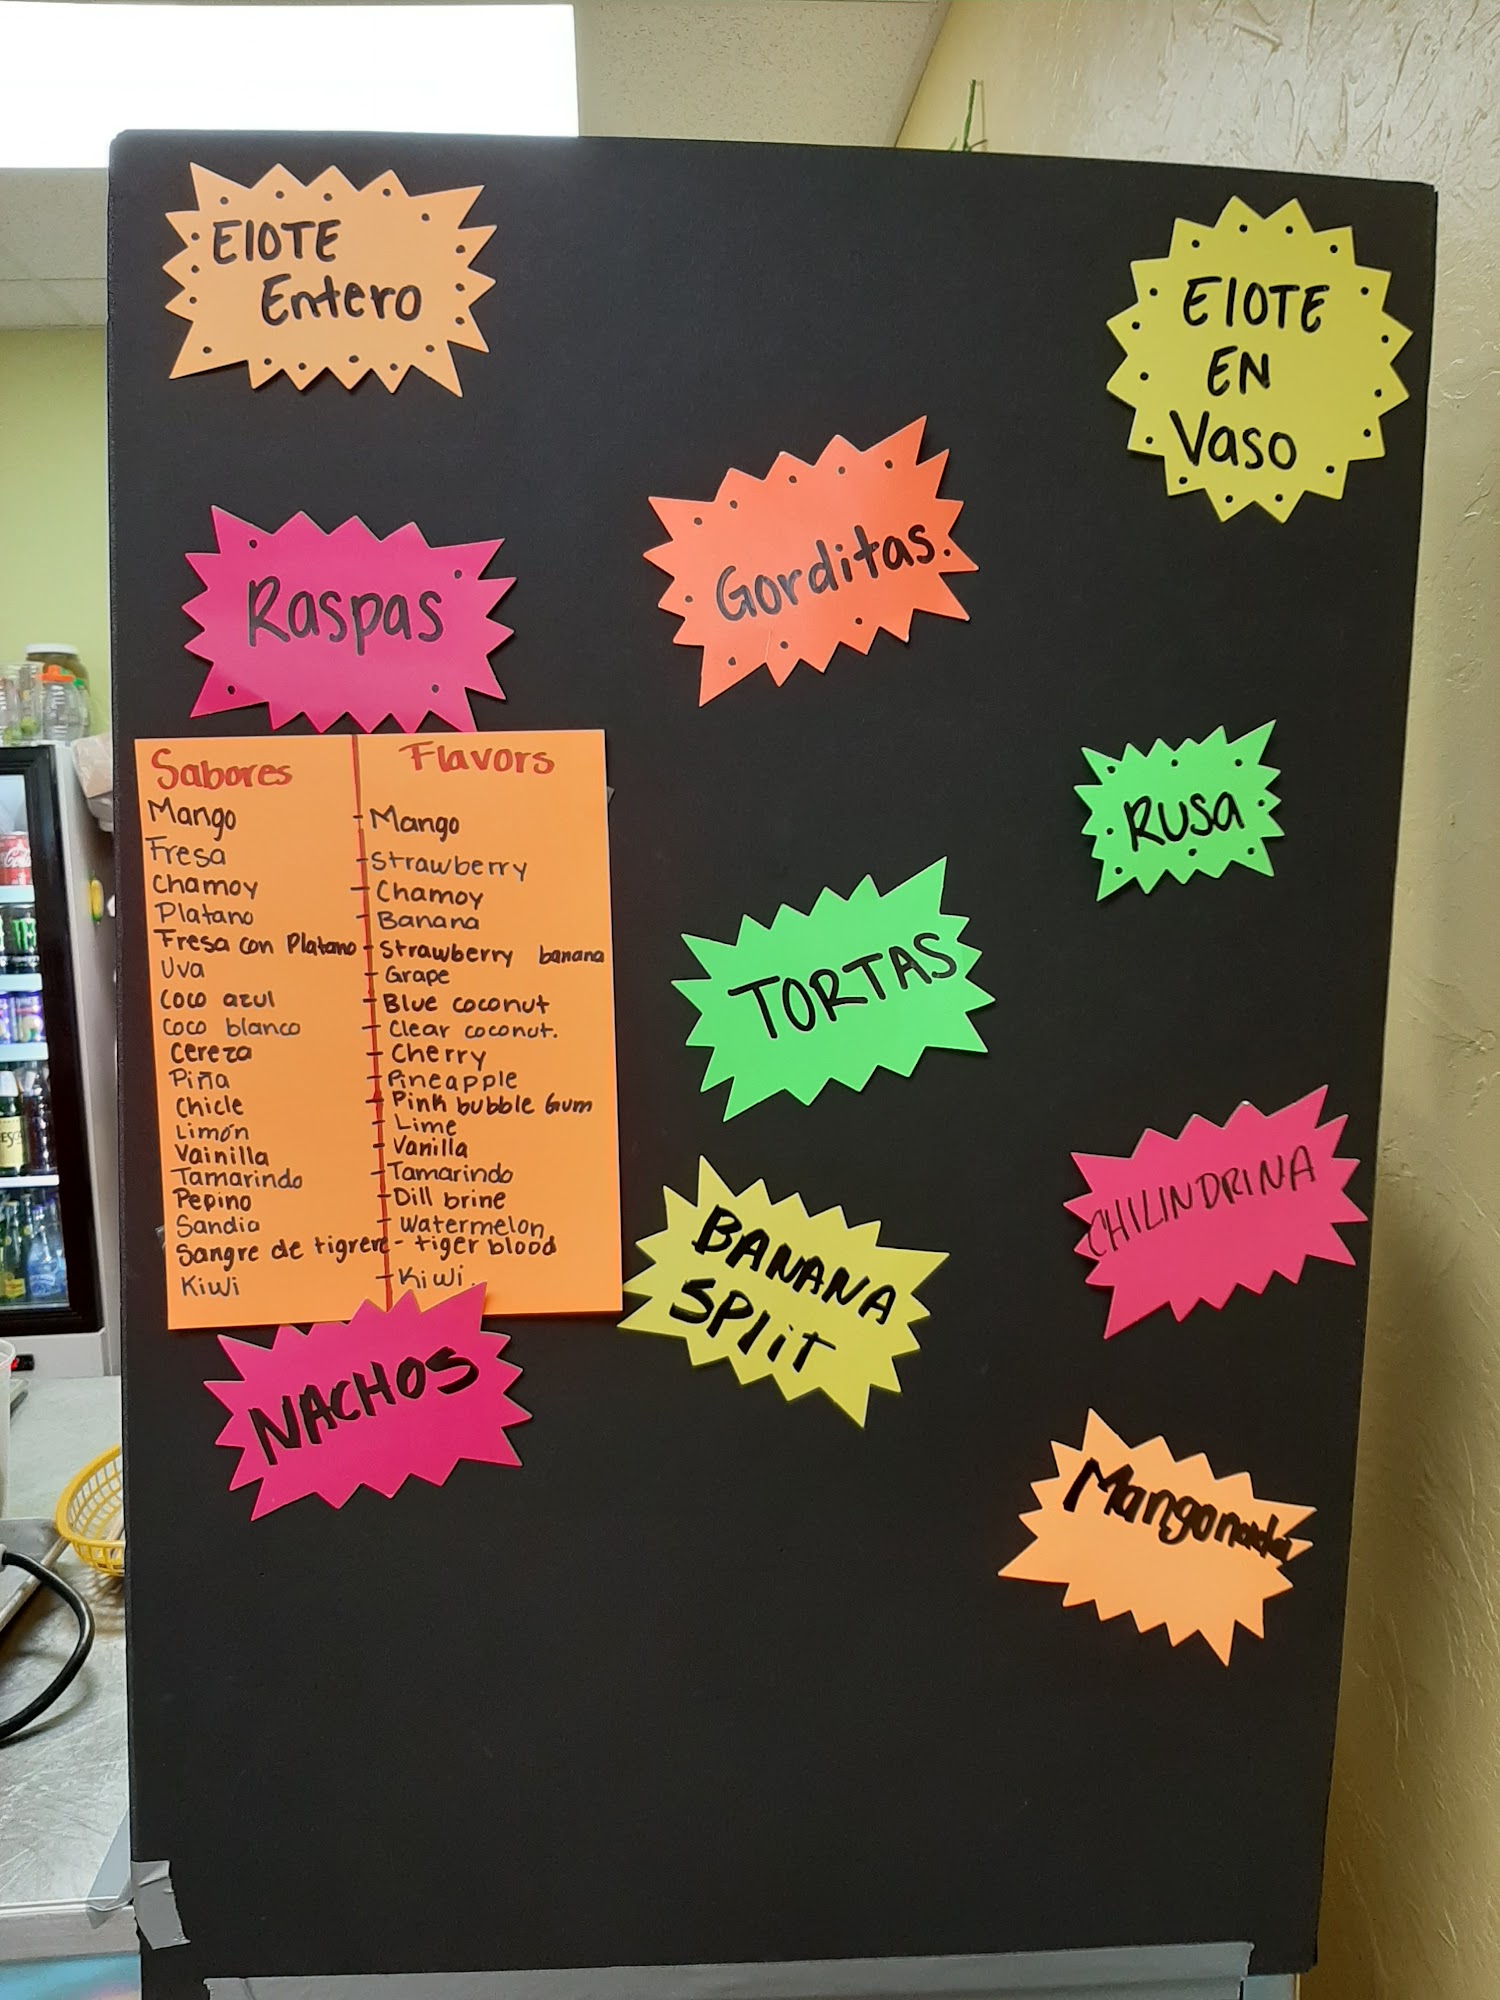 ElOTE
Entero
ElOTE
EN
Vaso
Gorditas.
Raspas
Sabores Flavors
Mango - Mango
Fresa - Strawberry
Chamoy - Chamoy
Platano - Banana
Fresa con Platano - Strawberry banana
Uva - Grape
Coco azul - Blue coconut
Coco blanco - Clear coconut.
Cereza - Cherry
Piña - Pineapple
Chicle - Pink bubble Gum
Limón - Lime
Vainilla - Vanilla
Tamarindo - Tamarindo
Pepino - Dill brine
Sandia - Watermelon
Sangre de tigrere - tiger blood
Kiwi - Kiwi.
RUSA
TORTAS
CHILINDRINA
BANANA
SPliT
NACHOS
Mangonada